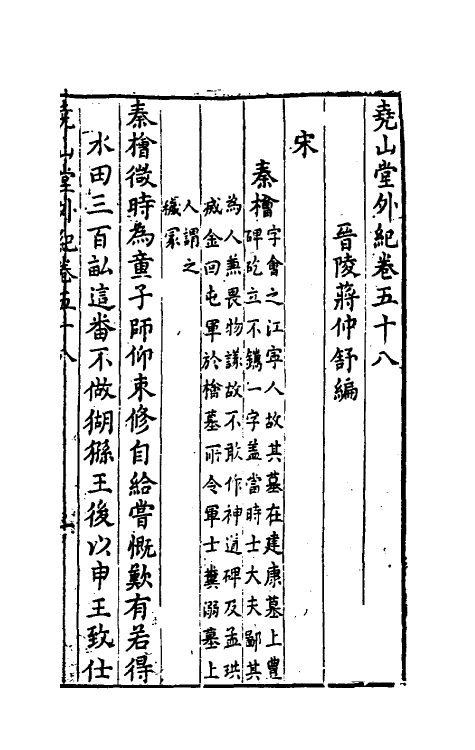 堯山堂外紀卷五十八
晉陵蔣仲舒編
宋
秦檜
字會之江寧人故其墓在建康墓上豐
碑屹立不鐫一字蓋當時士大夫鄙其
為人兼畏物議故不敢作神道碑及孟珙
滅金回屯軍於檜墓所令軍士糞溺墓上
人謂之
穢冢
秦檜微時為童子師仰束修自給嘗慨歎有若得
水田三百畝這番不做猢猻王後以申王致仕
堯山堂外紀卷五十八
一